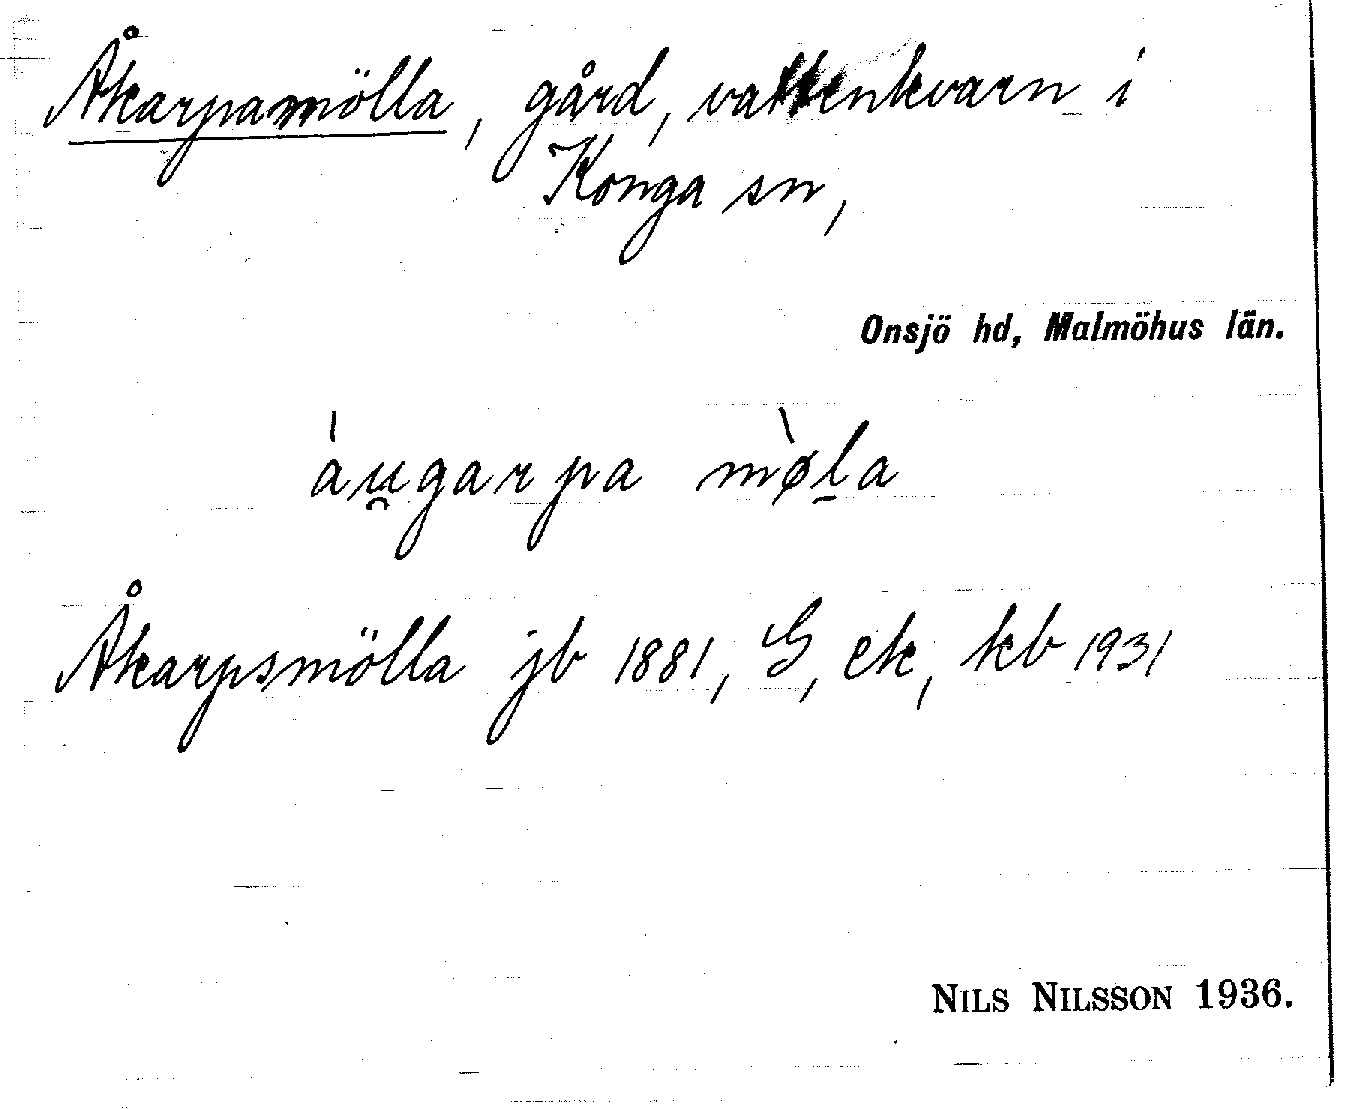 Åkarpamölla, gård, vattenkvarn i
Konga sn,
Onsjö hd, Malmöhus län.
àu̯garpa mø̀l̠a
Åkarpsmölla jb 1881, G, ek, kb 1931
NILS NILSSON 1936.